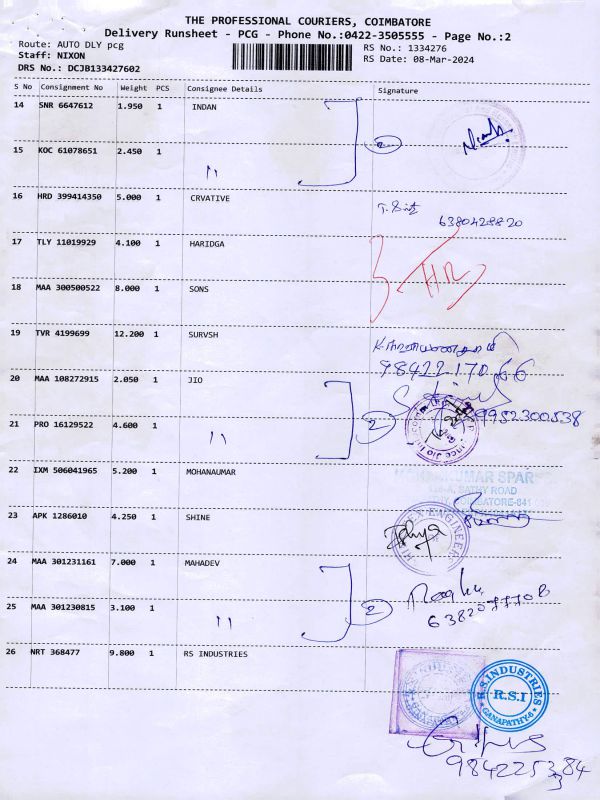 THE PROFESSIONAL COURIERS, COIMBATORE
Delivery Runsheet - PCG - Phone No.:0422-3505555 - Page No.:2
Route: AUTO DLY pcg
RS No.: 1334276
Staff: NIXON
RS Date: 08-Mar-2024
DRS No.: DCJB133427602
S No Consignment No Weight PCS Consignee Details Signature
14 SNR 6647612 1.950 1 INDAN
2
15 KOC 61078651 2.450 1
"
16 HRD 399414350 5.000 1 CRVATIVE
6380428820
17 TLY 11019929 4.100 1 HARIDGA
18 MAA 300500522 8.000 1 SONS
19 TVR 4199699 12.200 1 SURVSH
98422 170 66
20 MAA 108272915 2.050 1 JIO
9952300538
21 PRO 16129522 4.600 1
" 2
22 IXM 506041965 5.200 1 MOHANAUMAR
23 APK 1286010 4.250 1 SHINE
24 MAA 301231161 7.000 1 MAHADEV
25 MAA 301230815 3.100 1
" 2
26 NRT 368477 9.800 1 RS INDUSTRIES
R.S.INDUSTRIES
R.S.I
GANAPATHY-6